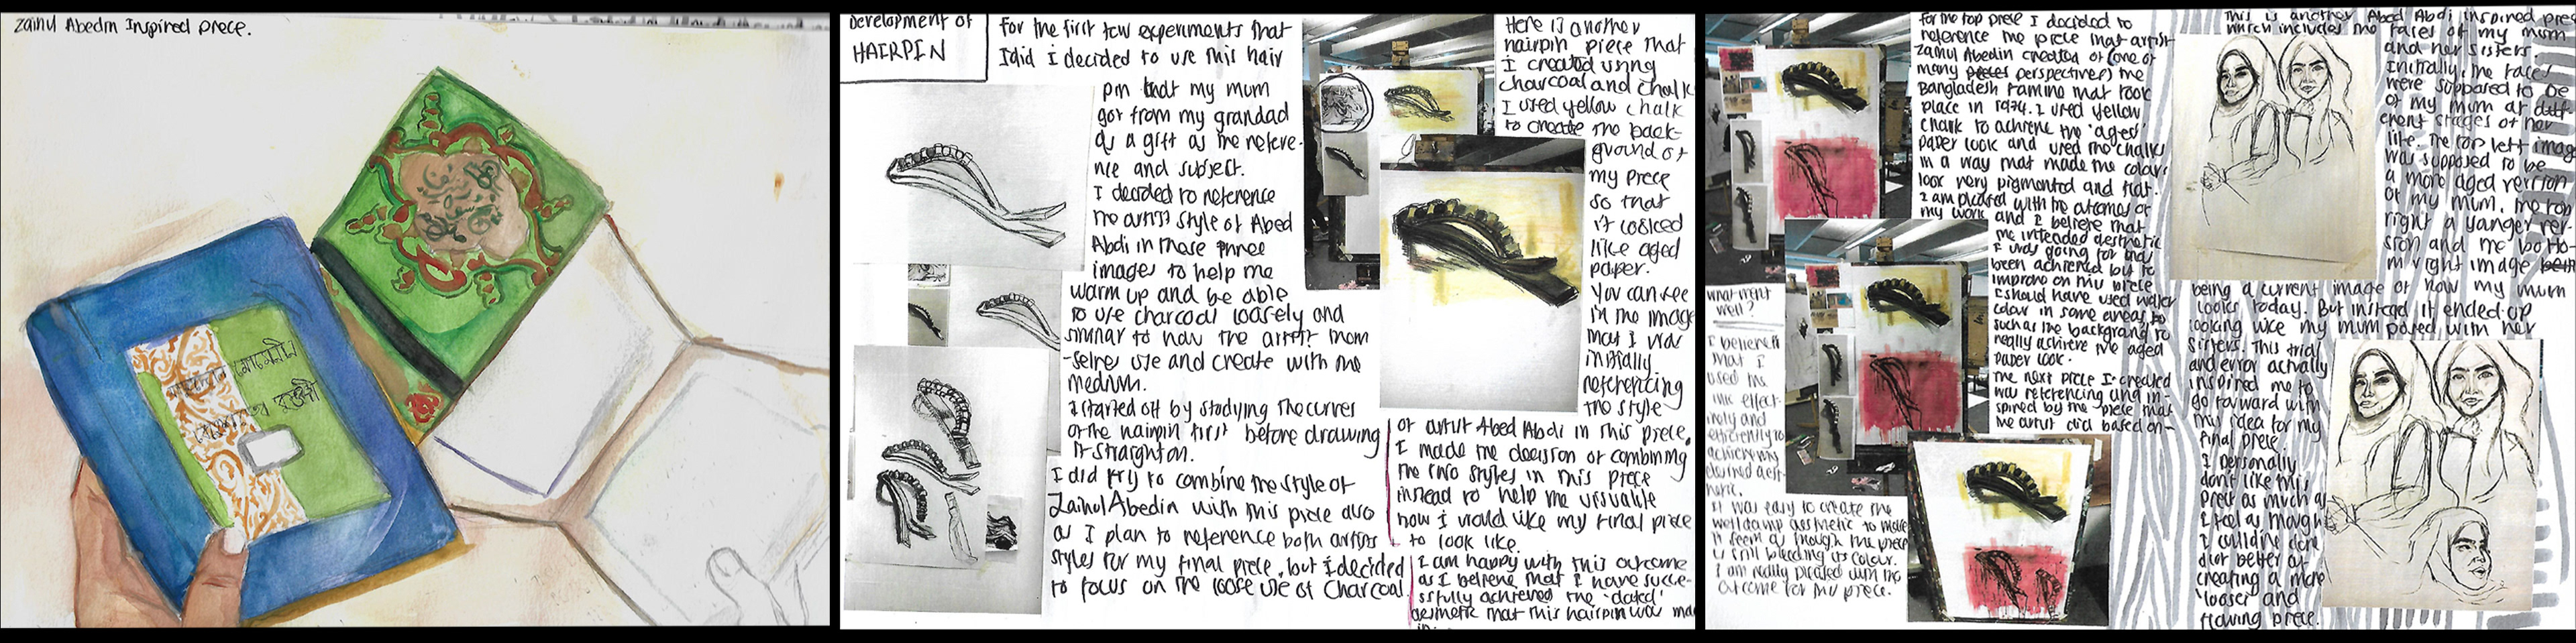 Zainul Abedin Inspired piece.
Development of
HAIRPIN
For the first few experiments that
I did I decided to use this hair
pin that my mum
got from my grandad
as a gift as the refere-
nce and subject.
I decided to reference
the artist style of Abed
Abdi in these three
images to help me
warm up and be able
to use charcoal loosely and
similar to how the artist them
-selves use and create with the
medium.
I started off by studying the curves
of the hairpin first before drawing
it straight on.
I did try to combine the style of
Zainul Abedin with this piece also
as I plan to reference both artists
styles for my final piece, but I decided
to focus on the loose use of Charcoal.
Here is another
hairpin piece that
I created using
charcoal and chalk
I used yellow chalk
to create the back-
ground of
my piece
so that
it looked
like aged
paper.
You can see
in the image
that I was
initially
referencing
the style
of artist Abed Abdi in this piece.
I made the decision of combining
the two styles in this piece
instead to help me visualise
how I would like my final piece
to look like.
I am happy with this outcome
as I believe that I have succe-
ssfully achieved the 'dated'
aesthetic that this hairpin was
For the top piece I decided to
reference the piece that artist
Zainul Abedin created of (one of
many perspectives) the
Bangladesh Famine that took
place in 1974. I used yellow
chalk to achieve the 'aged'
paper look and used the chalks
in a way that made the colour
look very pigmented and flat.
I am pleased with the outcome of
my work and I believe that
the intended aesthetic
I was going for has
been achieved but to
improve on this piece
I should have used water
colour in some areas to
such as the background to
really achieve the aged
paper look.
The next piece I created
was referencing and in-
spired by the piece that
the artist did based on-
what went
well?
I believe
that I
used the
ink effect-
ively and
efficiently to
achieve my
desired aest-
hetic.
It was easy to create the
aesthetic to make
it seem as though the piece
is still bleeding its colour.
I am really pleased with the
outcome for my piece.
This is another Abed Abdi inspired piece
which includes the faces of my mum
and her sisters
Initially, the faces
were supposed to be
of my mum at diff
erent stages of her
life. The top left image
was supposed to be
a more aged version
of my mum, the top
right a yanger ver-
sion and the botto-
m right image
being a current image of how my mum
looks today. But instead it ended up
looking like my mum posed with her
sisters. This trial
and error actually
inspired me to
go forward with
this idea for my
final piece.
I personally
don't like this
piece as much as
I feel as though
I could've done
better at
creating a more
'looser' and
flowing piece.